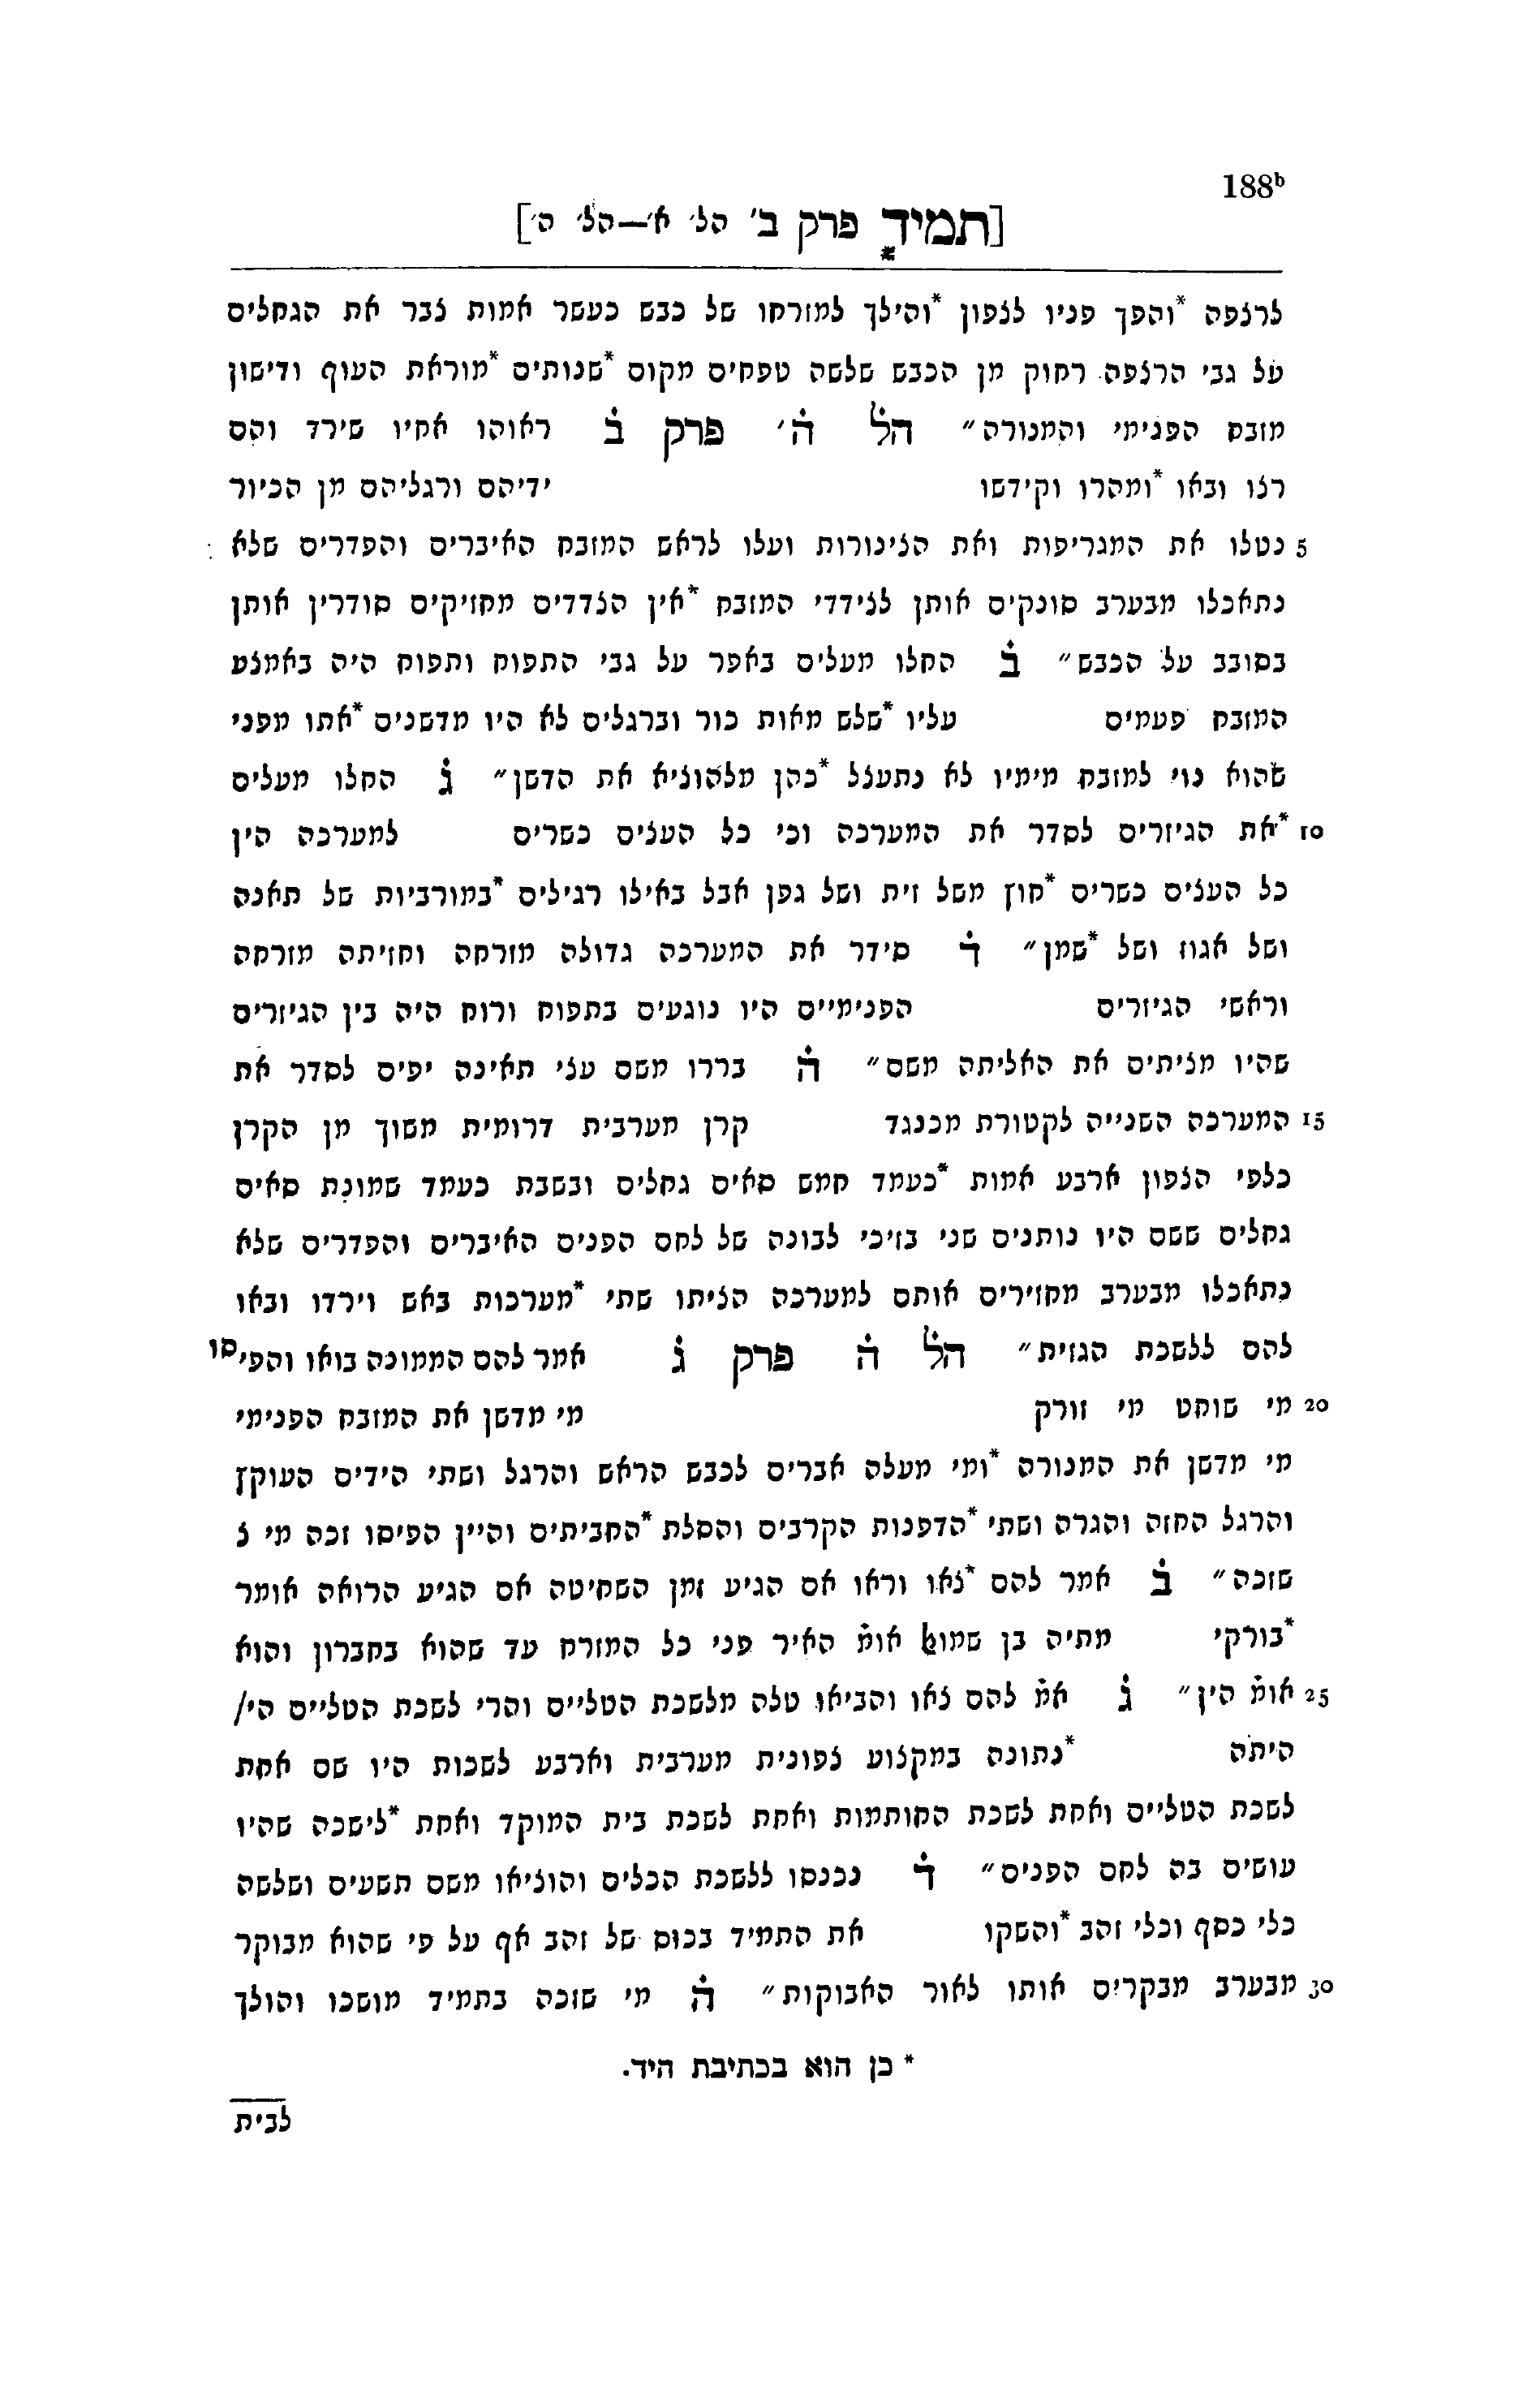 188ᵇ
[תמיד פרק ב' הל' א'—הל' ה']
*
לרצפה *והפך פניו לצפון *והילך למזרחו של כבש כעשר אמות צבר את הגחלים
על גבי הרצפה רחוק מן הכבש שלשה טפחים מקום *שנותים *מוראת העוף ודישון
מזבח הפנימי והמנורה״ הל ה' פרק ב ראוהו אחיו שירד והם
רצו ובאו *ומהרו וקידשו ידיהם ורגליהם מן הכיור
5 נטלו את המגריפות ואת הצינורות ועלו לראש המזבח האיברים והפדרים שלא
נתאכלו מבערב סונקים אותן לצידדי המזבח *אין הצדדים מחזיקים סודרין אותן
בסובב על הכבש״ ב החלו מעלים באפר על גבי התפוח ותפוח היה באמצע
המזבח פעמים עליו *שלש מאות כור וברגלים לא היו מדשנים *אתו מפני
שהוא נוי למזבח מימיו לא נתעצל *כהן מלהוציא את הדשן״ ג החלו מעלים
10 *את הגיזרים לסדר את המערכה וכי כל העצים כשרים למערכה הין
כל העצים כשרים *חוץ משל זית ושל גפן אבל באילו רגילים *במורביות של תאנה
ושל אגוז ושל *שמן״ ד סידר את המערכה גדולה מזרחה וחזיתה מזרחה
וראשי הגיזרים הפנימיים היו נוגעים בתפוח ורוח היה בין הגיזרים
שהיו מציתים את האליתה משם״ ה בררו משם עצי תאינה יפים לסדר את
15 המערכה השנייה לקטורת מכנגד קרן מערבית דרומית משוך מן הקרן
כלפי הצפון ארבע אמות *כעמד חמש סאים גחלים ובשבת כעמד שמונת סאים
גחלים ששם היו נותנים שני בזיכי לבונה של לחם הפנים האיברים והפדרים שלא
נתאכלו מבערב מחזירים אותם למערכה הציתו שתי *מערכות באש וירדו ובאו
להם ללשכת הגזית״ הל ה פרק ג אמר להם הממונה בואו והפיסו
20 מי שוחט מי זורק מי מדשן את המזבח הפנימי
מי מדשן את המנורה *ומי מעלה אברים לכבש הראש והרגל ושתי הידים העוקץ
והרגל החזה והגרה ושתי *הדפנות הקרבים והסלת *החביתים והיין הפיסו זכה מי צ
שזכה״ ב אמר להם *צאו וראו אם הגיע זמן השחיטה אם הגיע הרואה אומר
*בורקי מתיה בן שמואל אומ האיר פני כל המזרח עד שהוא בחברון והוא
25 אומ הין״ ג אמ להם צאו והביאו טלה מלשכת הטליים והרי לשכת הטליים הי/
היתה *נתונה במקצוע צפונית מערבית וארבע לשכות היו שם אחת
לשכת הטליים ואחת לשכת החותמות ואחת לשכת בית המוקד ואחת *לישכה שהיו
עושים בה לחם הפנים״ ד נכנסו ללשכת הכלים והוציאו משם תשעים ושלשה
כלי כסף וכלי זהב *והשקו את התמיד בכוס של זהב אף על פי שהוא מבוקר
30 מבערב מבקרים אותו לאור האבוקות״ ה מי שזכה בתמיד מושכו והולך
* כן הוא בכתיבת היד.
לבית